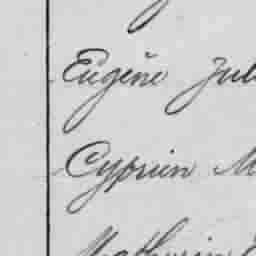 Eugène Jul
Cyprien M
Mathurin